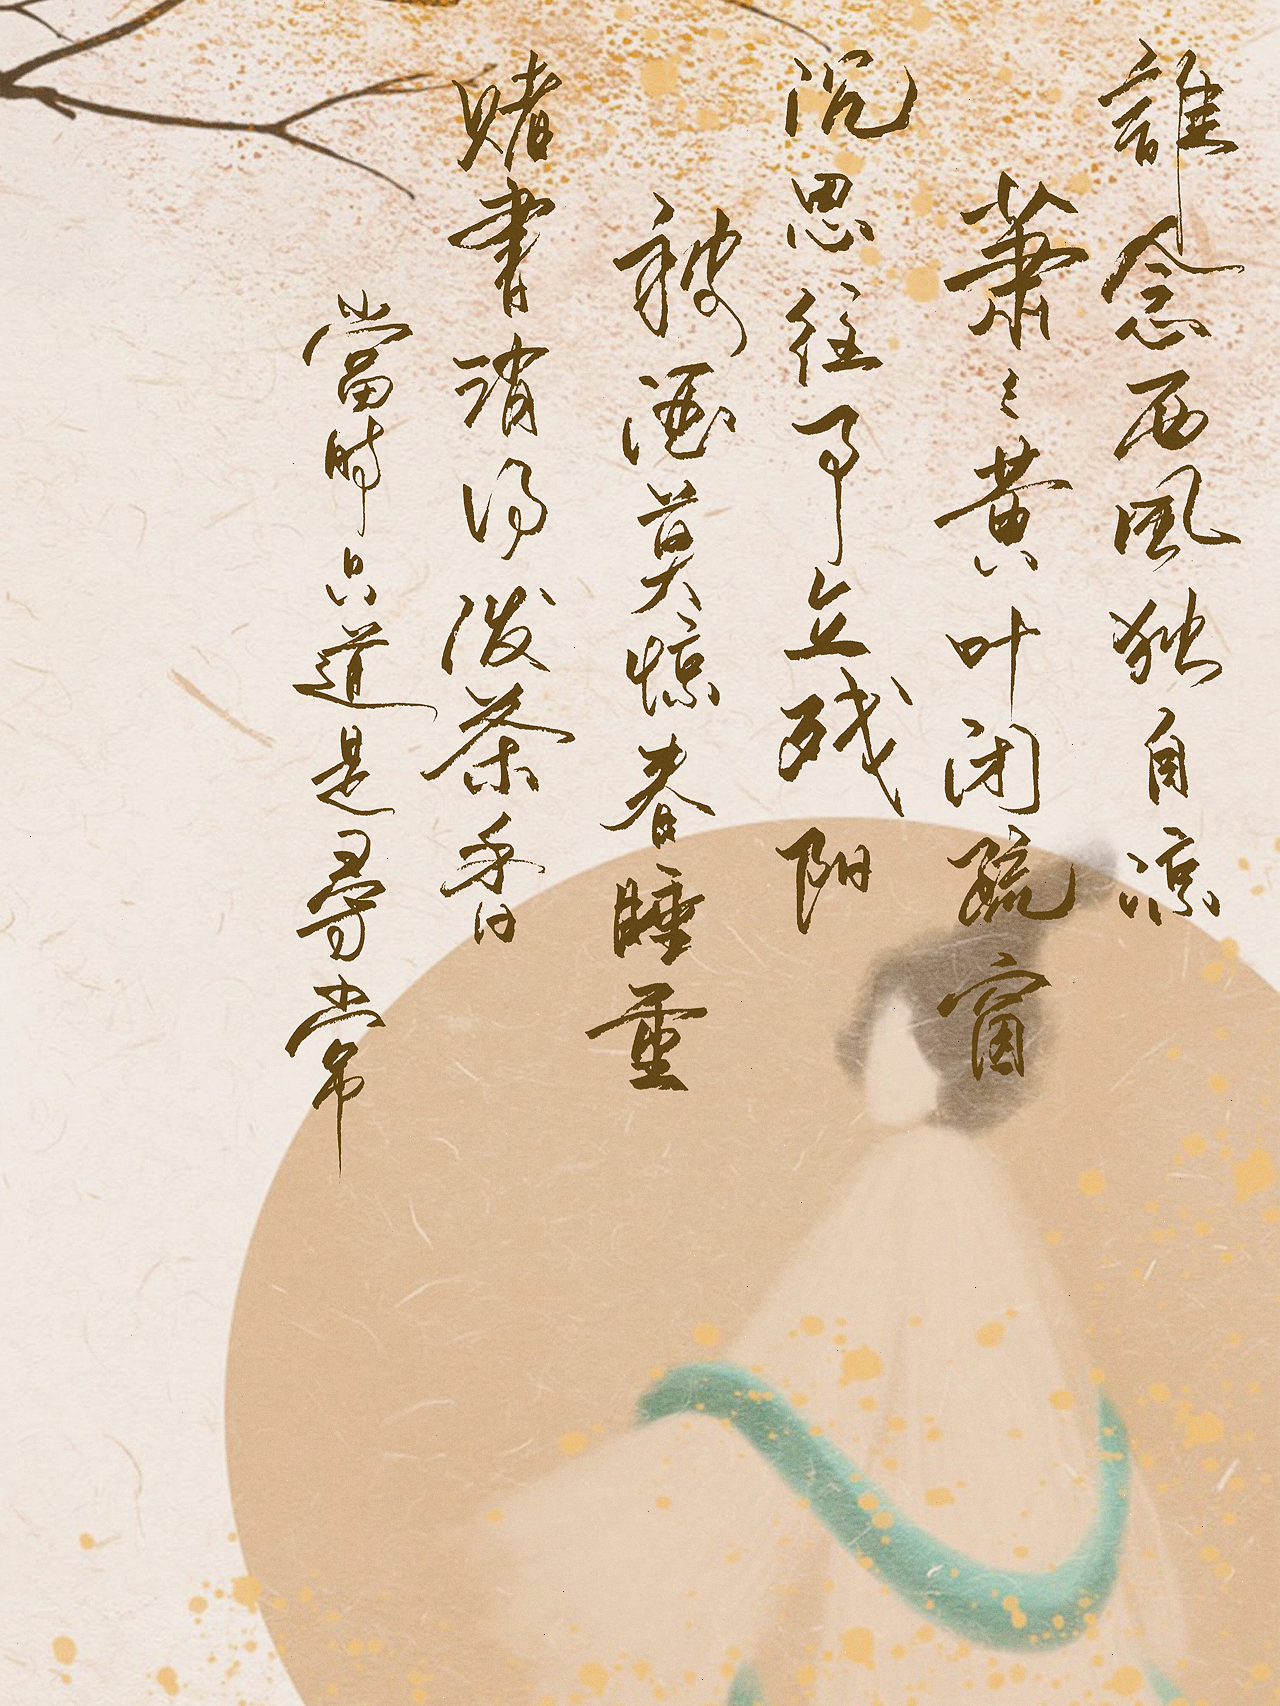 誰念西風独自凉
蕭々黄叶闭疏窗
沉思往事立残阳
被酒莫惊春睡重
赌書消得泼茶香
當时只道是尋常